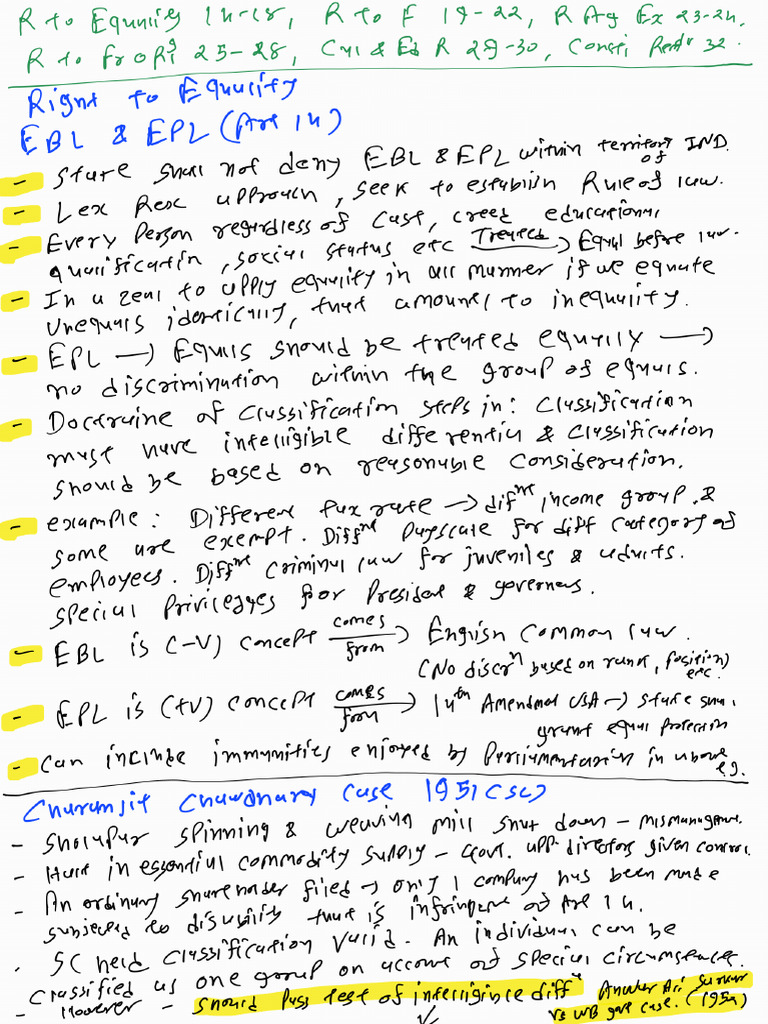 R to Equality 14-18, R to F 19-22, R Ag Ex 23-24,
R to FroRi 25-28, Cul & Ed R 29-30, Consti Rem 32.
Right to Equality
EBL & EPL (Art 14)
- State shall not deny EBL & EPL within territory of IND.
- Lex Rex approach, seek to establish Rule of law.
- Every Person regardless of caste, creed educational
qualification, social status etc Treated → Equal before law.
- In a zeal to apply equality in all manner if we equate
unequals identically, that amounts to inequality.
- EPL → Equals should be treated equally →
no discrimination within the group of equals.
- Doctrine of classification steps in: classification
must have intelligible differentia & classification
should be based on reasonable consideration.
- example: Different tax rate → difnt income group. &
some are exempt. Diffnt payscale for diff category of
employees. Diffnt criminal law for juveniles & adults.
special privileges for President & governors.
- EBL is (-v) concept comes from → English common law.
(No discrn based on rank, position) etc.
- EPL is (+v) concept comes from → 14th Amendment USA → state shall
grant equal protection
- Can include immunities enjoyed by Parliamentarian in above eg.
Churanjit Chawdhary case 1951 (SC)
- Sholapur spinning & weaving mill shut down - mismanagement.
- Hurt in essential commodity supply - Govt. app. directors given control.
- An ordinary shareholder filed → only 1 company has been made
subjected to disability that is infringement of Art 14.
- SC held classification valid. An individual can be
classified as one group on account of special circumstances.
- However - should pass test of intelligible diff Anwar Ali Sarkar
vs WB govt case. (1952)